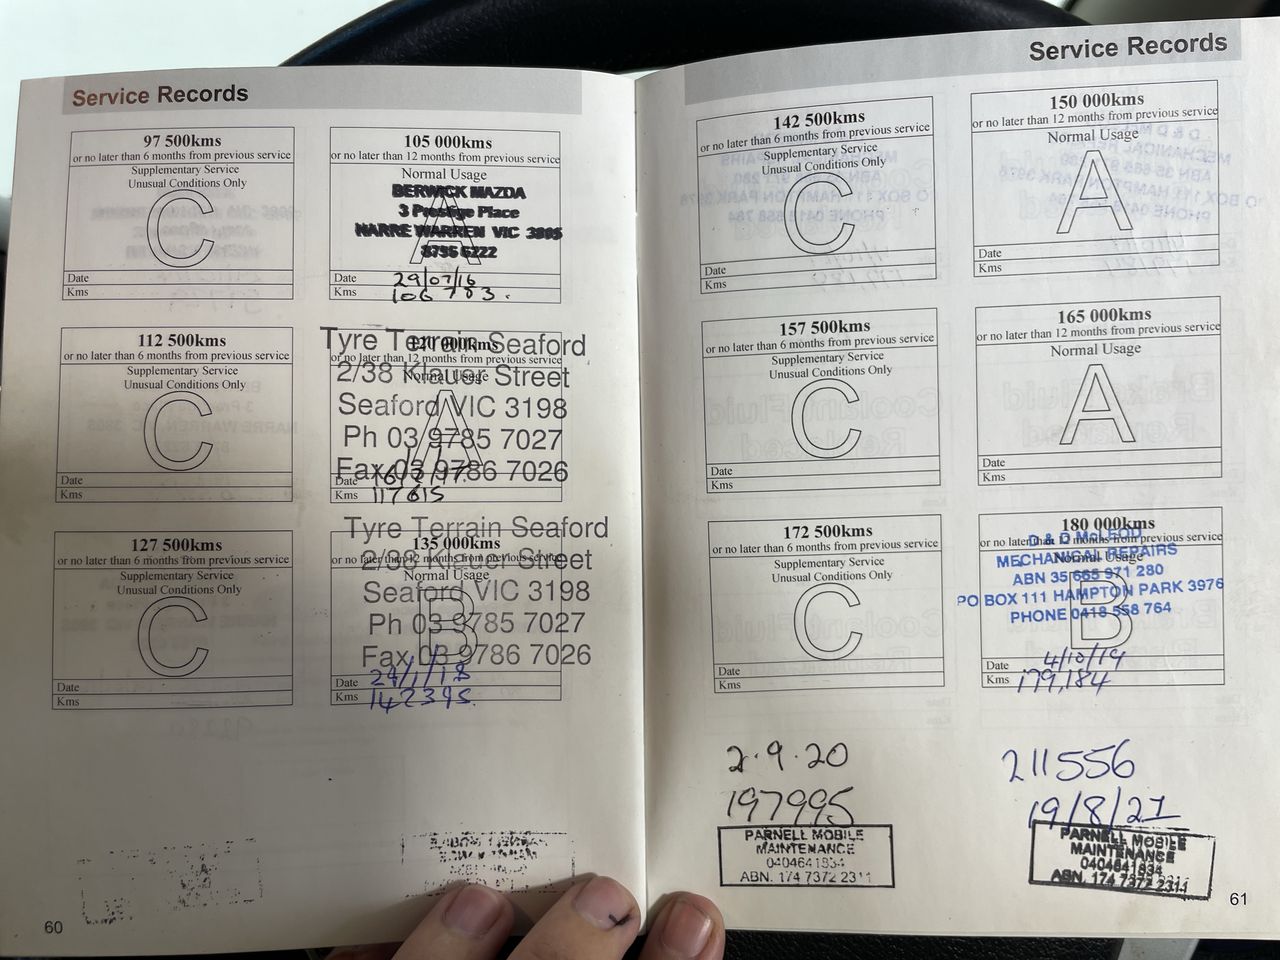 Service Records
97 500kms
or no later than 6 months from previous service
Supplementary Service
Unusual Conditions Only
C
Date
Kms
105 000kms
or no later than 12 months from previous service
Normal Usage
A
BERWICK MAZDA
3 Prestige Place
NARRE WARREN VIC 3805
Date 29/07/16
Kms 106 783.
112 500kms
or no later than 6 months from previous service
Supplementary Service
Unusual Conditions Only
C
Date
Kms
120 000kms
or no later than 12 months from previous service
Normal Usage
A
Tyre Terrain Seaford
2/38 Klauer Street
Seaford VIC 3198
Ph 03 9785 7027
Fax 03 9786 7026
Date
Kms 117615
127 500kms
or no later than 6 months from previous service
Supplementary Service
Unusual Conditions Only
C
Date
Kms
135 000kms
or no later than 12 months from previous service
Normal Usage
B
Tyre Terrain Seaford
2/38 Klauer Street
Seaford VIC 3198
Ph 03 9785 7027
Fax 03 9786 7026
Date 29/1/18
Kms 142395.
60
Service Records
142 500kms
or no later than 6 months from previous service
Supplementary Service
Unusual Conditions Only
C
Date
Kms
150 000kms
or no later than 12 months from previous service
Normal Usage
A
Date
Kms
157 500kms
or no later than 6 months from previous service
Supplementary Service
Unusual Conditions Only
C
Date
Kms
165 000kms
or no later than 12 months from previous service
Normal Usage
A
Date
Kms
172 500kms
or no later than 6 months from previous service
Supplementary Service
Unusual Conditions Only
C
Date
Kms
180 000kms
or no later than 12 months from previous service
Normal Usage
B
D & D McLEOD
MECHANICAL REPAIRS
ABN 35 665 971 280
PO BOX 111 HAMPTON PARK 3976
PHONE 0418 558 764
Date 4/10/19
Kms 179,184
2.9.20
197995
PARNELL MOBILE
MAINTENANCE
0404641834
ABN. 174 7372 2311
211556
19/8/21
PARNELL MOBILE
MAINTENANCE
0404641834
ABN. 174 7372 2311
61